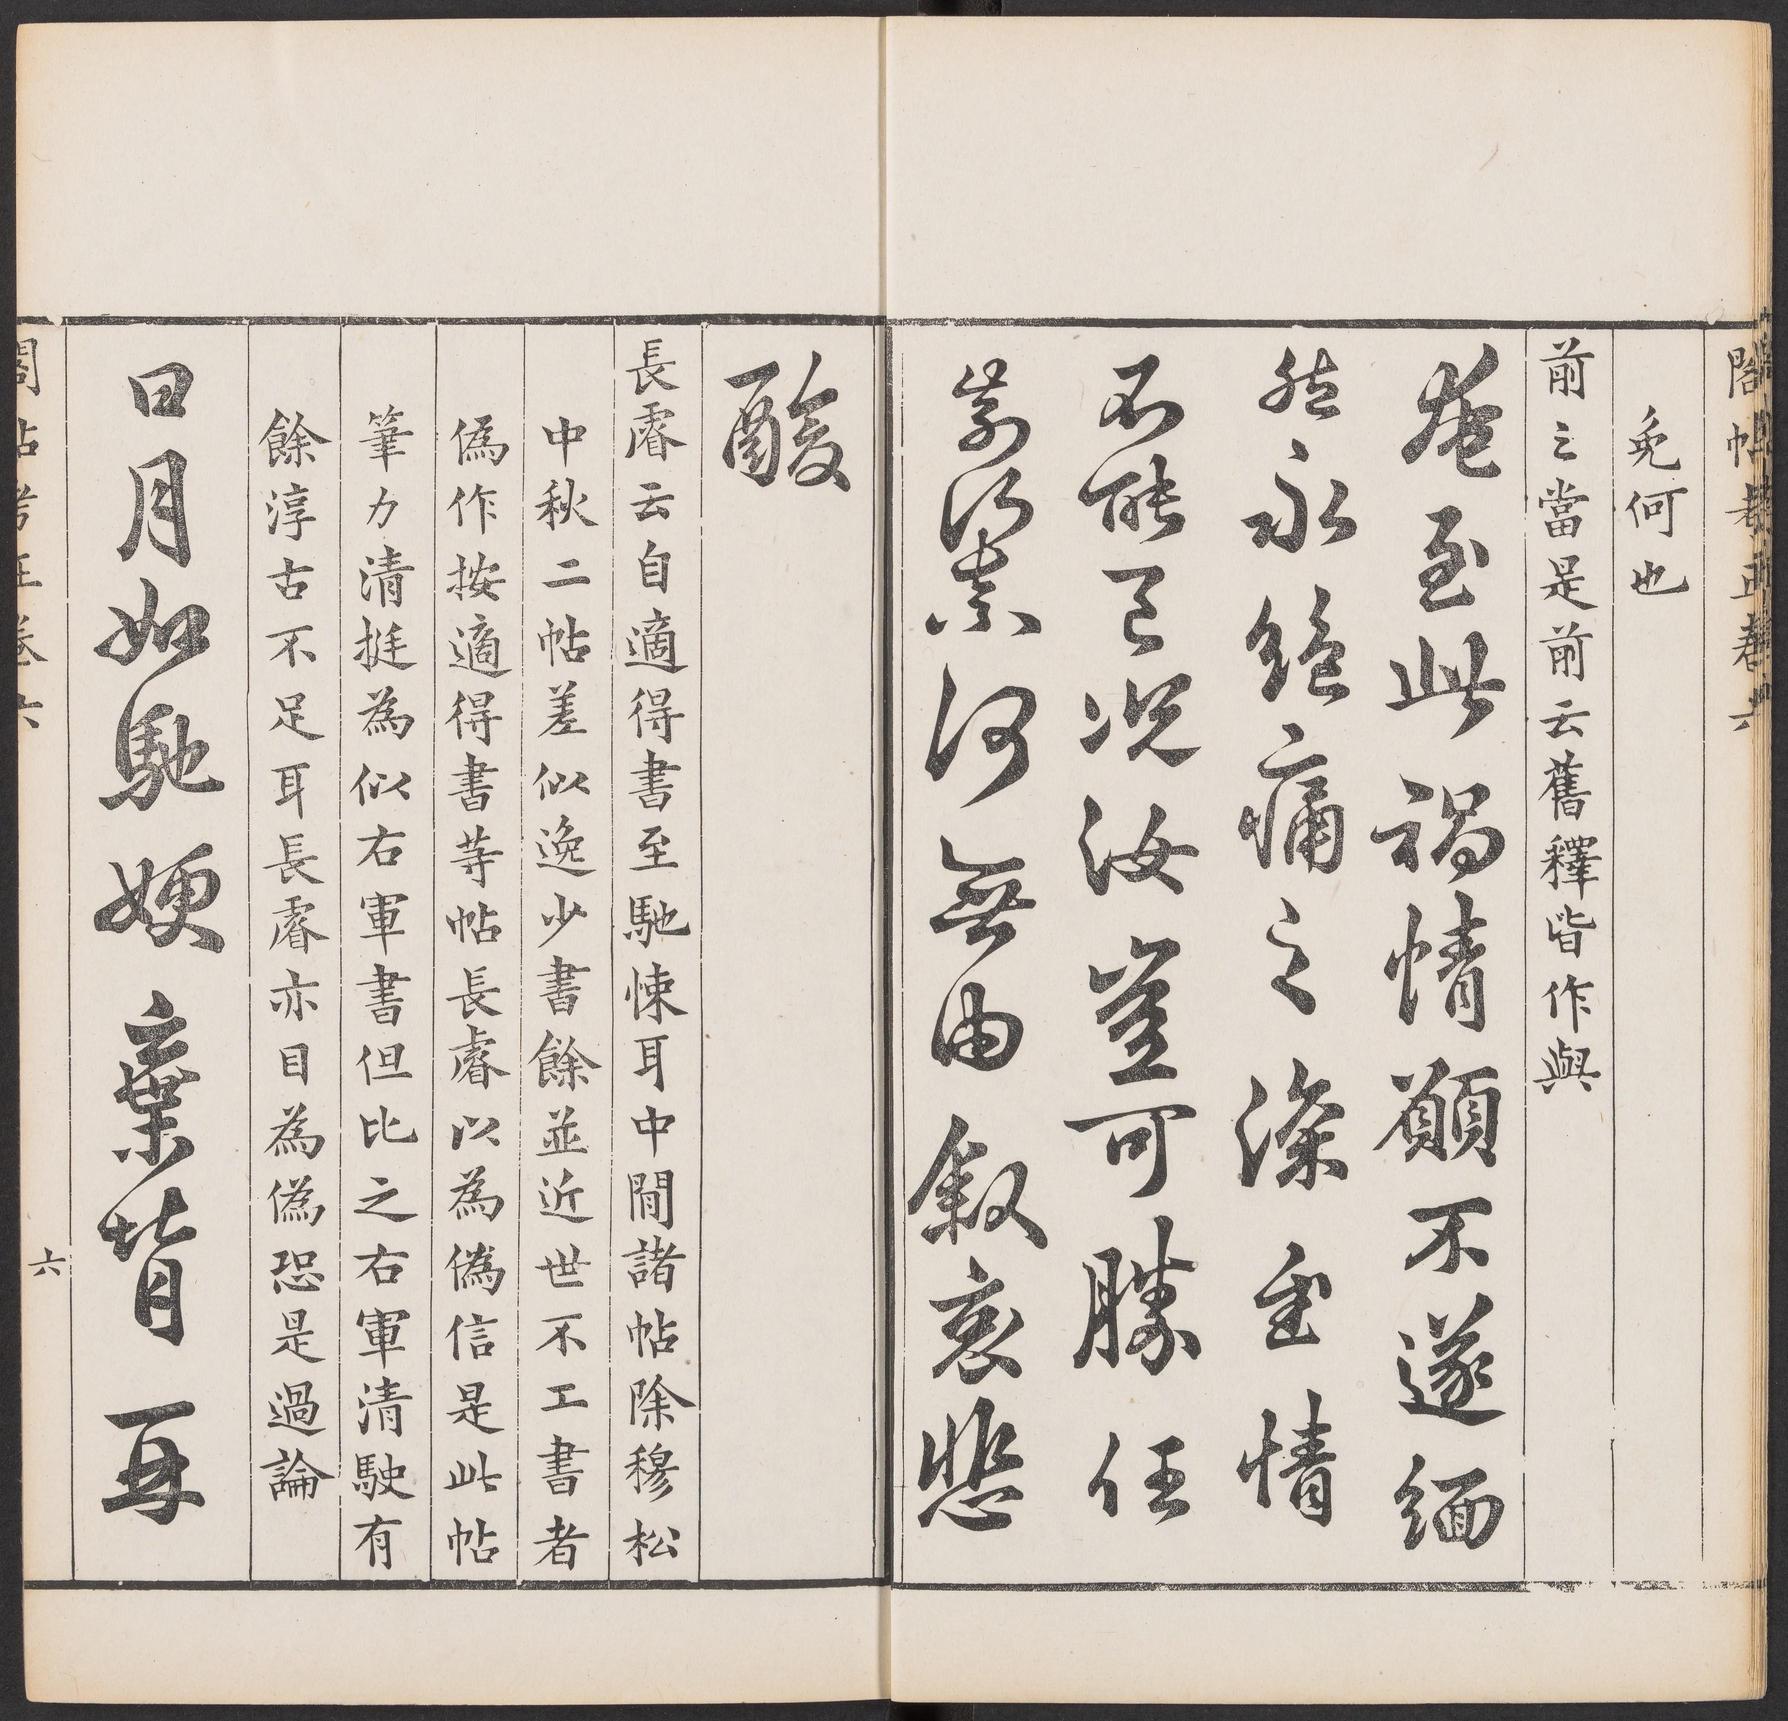 閣帖考正卷六
免何也
前之當是前云舊釋皆作與
奄至此禍情願不遂緬
然永絕痛之深至情
不能已況汝豈可勝任
奈何奈何無由敘哀悲
酸
長睿云自適得書至馳悚耳中間諸帖除穆松
中秋二帖差似逸少書餘並近世不工書者
偽作按適得書等帖長睿以為偽信是此帖
筆力清挺為似右軍書但比之右軍清駛有
餘淳古不足耳長睿亦目為偽恐是過論
日月如馳嫂棄背再
閣帖考正卷六
六